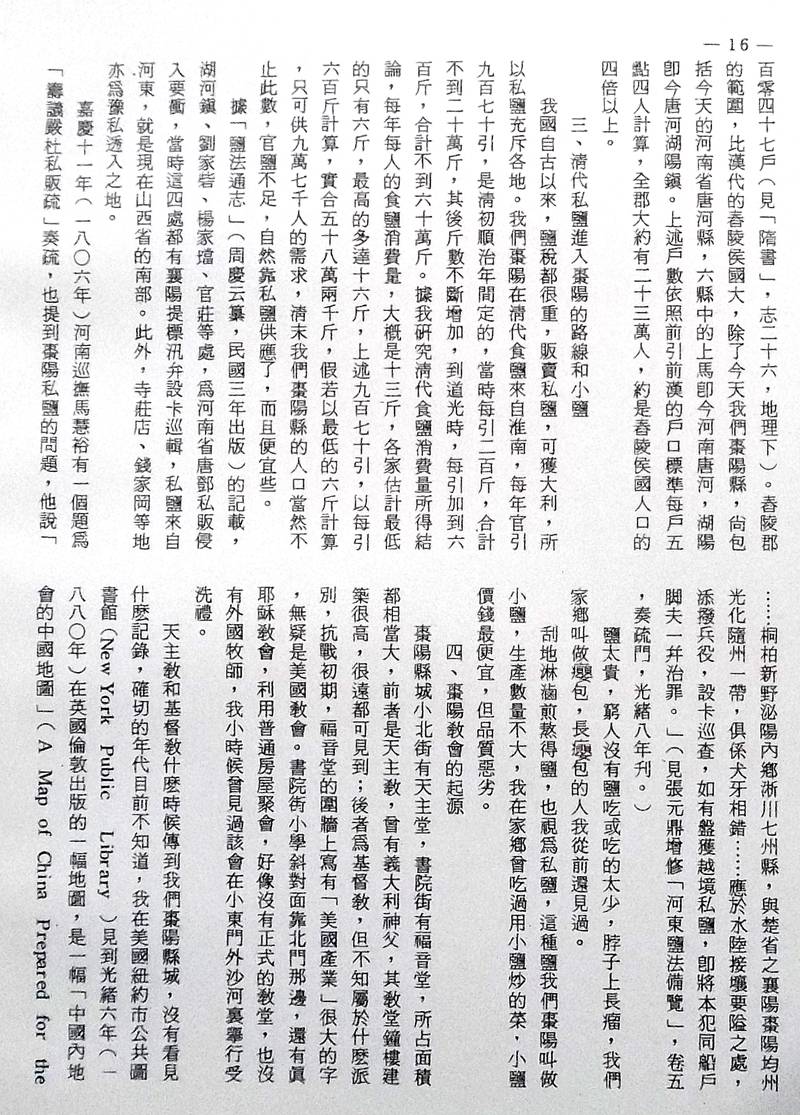 — 16 —
百零四十七戶(見「隋書」,志二十六,地理下)。舂陵郡
的範圍,比漢代的舂陵侯國大,除了今天我們棗陽縣,尙包
括今天的河南省唐河縣,六縣中的上馬卽今河南唐河,湖陽
卽今唐河湖陽鎭。上述戶數依照前引前漢的戶口標準每戶五
點四人計算,全郡大約有二十三萬人,約是舂陵侯國人口的
四倍以上。
三、淸代私鹽進入棗陽的路線和小鹽
我國自古以來,鹽稅都很重,販賣私鹽,可獲大利,所
以私鹽充斥各地。我們棗陽在淸代食鹽來自淮南,每年官引
九百七十引,是淸初順治年間定的,當時每引二百斤,合計
不到二十萬斤,其後斤數不斷增加,到道光時,每引加到六
百斤,合計不到六十萬斤。據我硏究淸代食鹽消費量所得結
論,每年每人的食鹽消費量,大槪是十三斤,各家估計最低
的只有六斤,最高的多達十六斤,上述九百七十引,以每引
六百斤計算,實合五十八萬兩千斤,假若以最低的六斤計算
,只可供九萬七千人的需求,淸末我們棗陽縣的人口當然不
止此數,官鹽不足,自然靠私鹽供應了,而且便宜些。
據「鹽法通志」(周慶云纂,民國三年出版)的記載,
湖河鎭、劉家砦、楊家壋、官莊等處,爲河南省唐鄧私販侵
入要衝,當時這四處都有襄陽提標汛弁設卡巡輯,私鹽來自
河東,就是現在山西省的南部。此外,寺莊店、錢家岡等地
亦爲豫私透入之地。
嘉慶十一年(一八〇六年)河南巡撫馬慧裕有一個題爲
「籌議嚴杜私販疏」奏疏,也提到棗陽私鹽的問題,他說「
……桐柏新野泌陽內鄉淅川七州縣,與楚省之襄陽棗陽均州
光化隨州一帶,俱係犬牙相錯……應於水陸接壤要隘之處,
添撥兵役,設卡巡査,如有盤獲越境私鹽,卽將本犯同船戶
脚夫一幷治罪。」(見張元鼎增修「河東鹽法備覽」,卷五
,奏疏門,光緖八年刊。)
鹽太貴,窮人沒有鹽吃或吃的太少,脖子上長瘤,我們
家鄉叫做癭包,長癭包的人我從前還見過。
刮地淋滷煎熬得鹽,也視爲私鹽,這種鹽我們棗陽叫做
小鹽,生產數量不大,我在家鄉曾吃過用小鹽炒的菜,小鹽
價錢最便宜,但品質惡劣。
四、棗陽敎會的起源
棗陽縣城小北街有天主堂,書院街有福音堂,所占面積
都相當大,前者是天主敎,曾有義大利神父,其敎堂鐘樓建
築很高,很遠都可見到;後者爲基督敎,但不知屬於什麽派
別,抗戰初期,福音堂的圍牆上寫有「美國產業」很大的字
,無疑是美國敎會。書院街小學斜對面靠北門那邊,還有眞
耶穌敎會,利用普通房屋聚會,好像沒有正式的敎堂,也沒
有外國牧師,我小時候曾見過該會在小東門外沙河裏擧行受
洗禮。
天主敎和基督敎什麽時候傳到我們棗陽縣城,沒有看見
什麽記錄,確切的年代目前不知道,我在美國紐約市公共圖
書館(New York Public Library )見到光緖六年(一
八八〇年)在英國倫敦出版的一幅地圖,是一幅「中國內地
會的中國地圖」(A Map of China Prepared for the